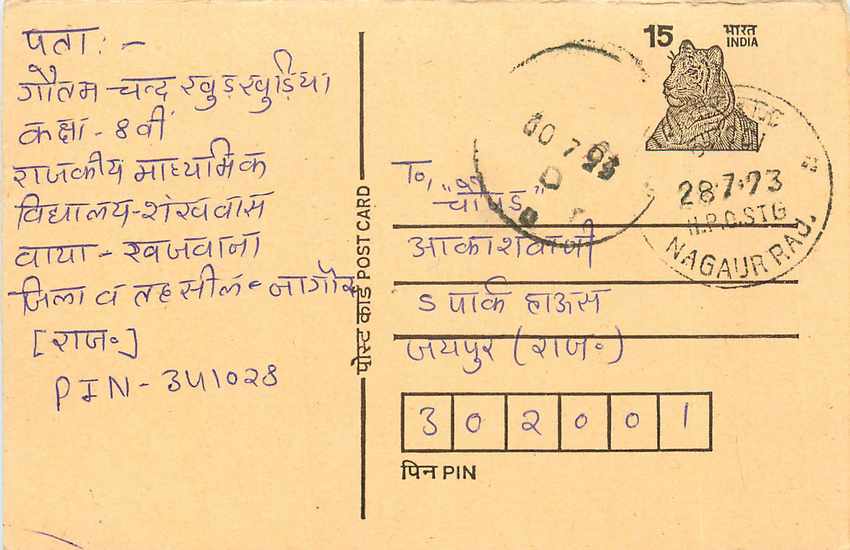 पता:-
गौतम चन्द खुड़खुड़िया
कक्षा - 8वीं
राजकीय माध्यमिक
विद्यालय-शंखवास
वाया - खजवाना
जिला व तहसील - नागौर
[राज॰]
PIN - 341028
पोस्ट कार्ड POST CARD
15
भारत
INDIA
28.7.93
H.P.O.STG
NAGAUR RAJ.
To, "चौपड़"
आकाशवाणी
5 पार्क हाऊस
जयपुर (राज॰)
302001
पिन PIN